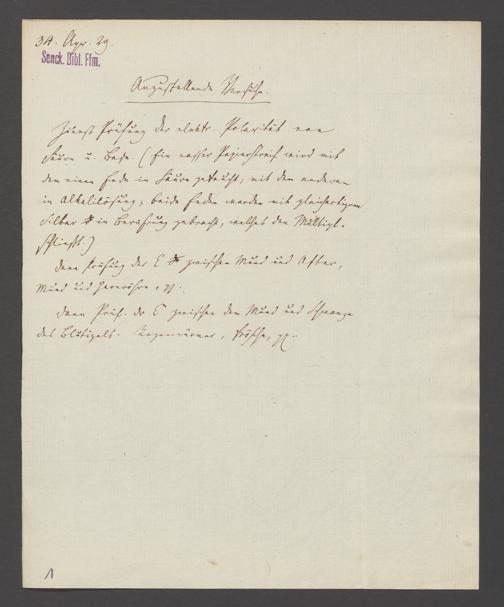 30. Apr. 29.
Senck. Bibl. Ffm.
Anzustellende Versuche.
Zuerst Prüfung der elektr. Polarität von
Säure u. Base. (Ein nasser Papierstreif wird mit
dem einen Ende in Säure getaucht, mit dem anderen
in Alkalilösung, beide Enden werden mit gleichartigem
Silber in Berührung gebracht, welches den Multipl.
schließt.)
dann Prüfung der E zwischen Mund und After,
Mund und Harnröhre, pp.
dann Prüf. der E zwischen dem Mund und Schwanze
des Blutigels. Regenwürmer, Frösche, pp.
1